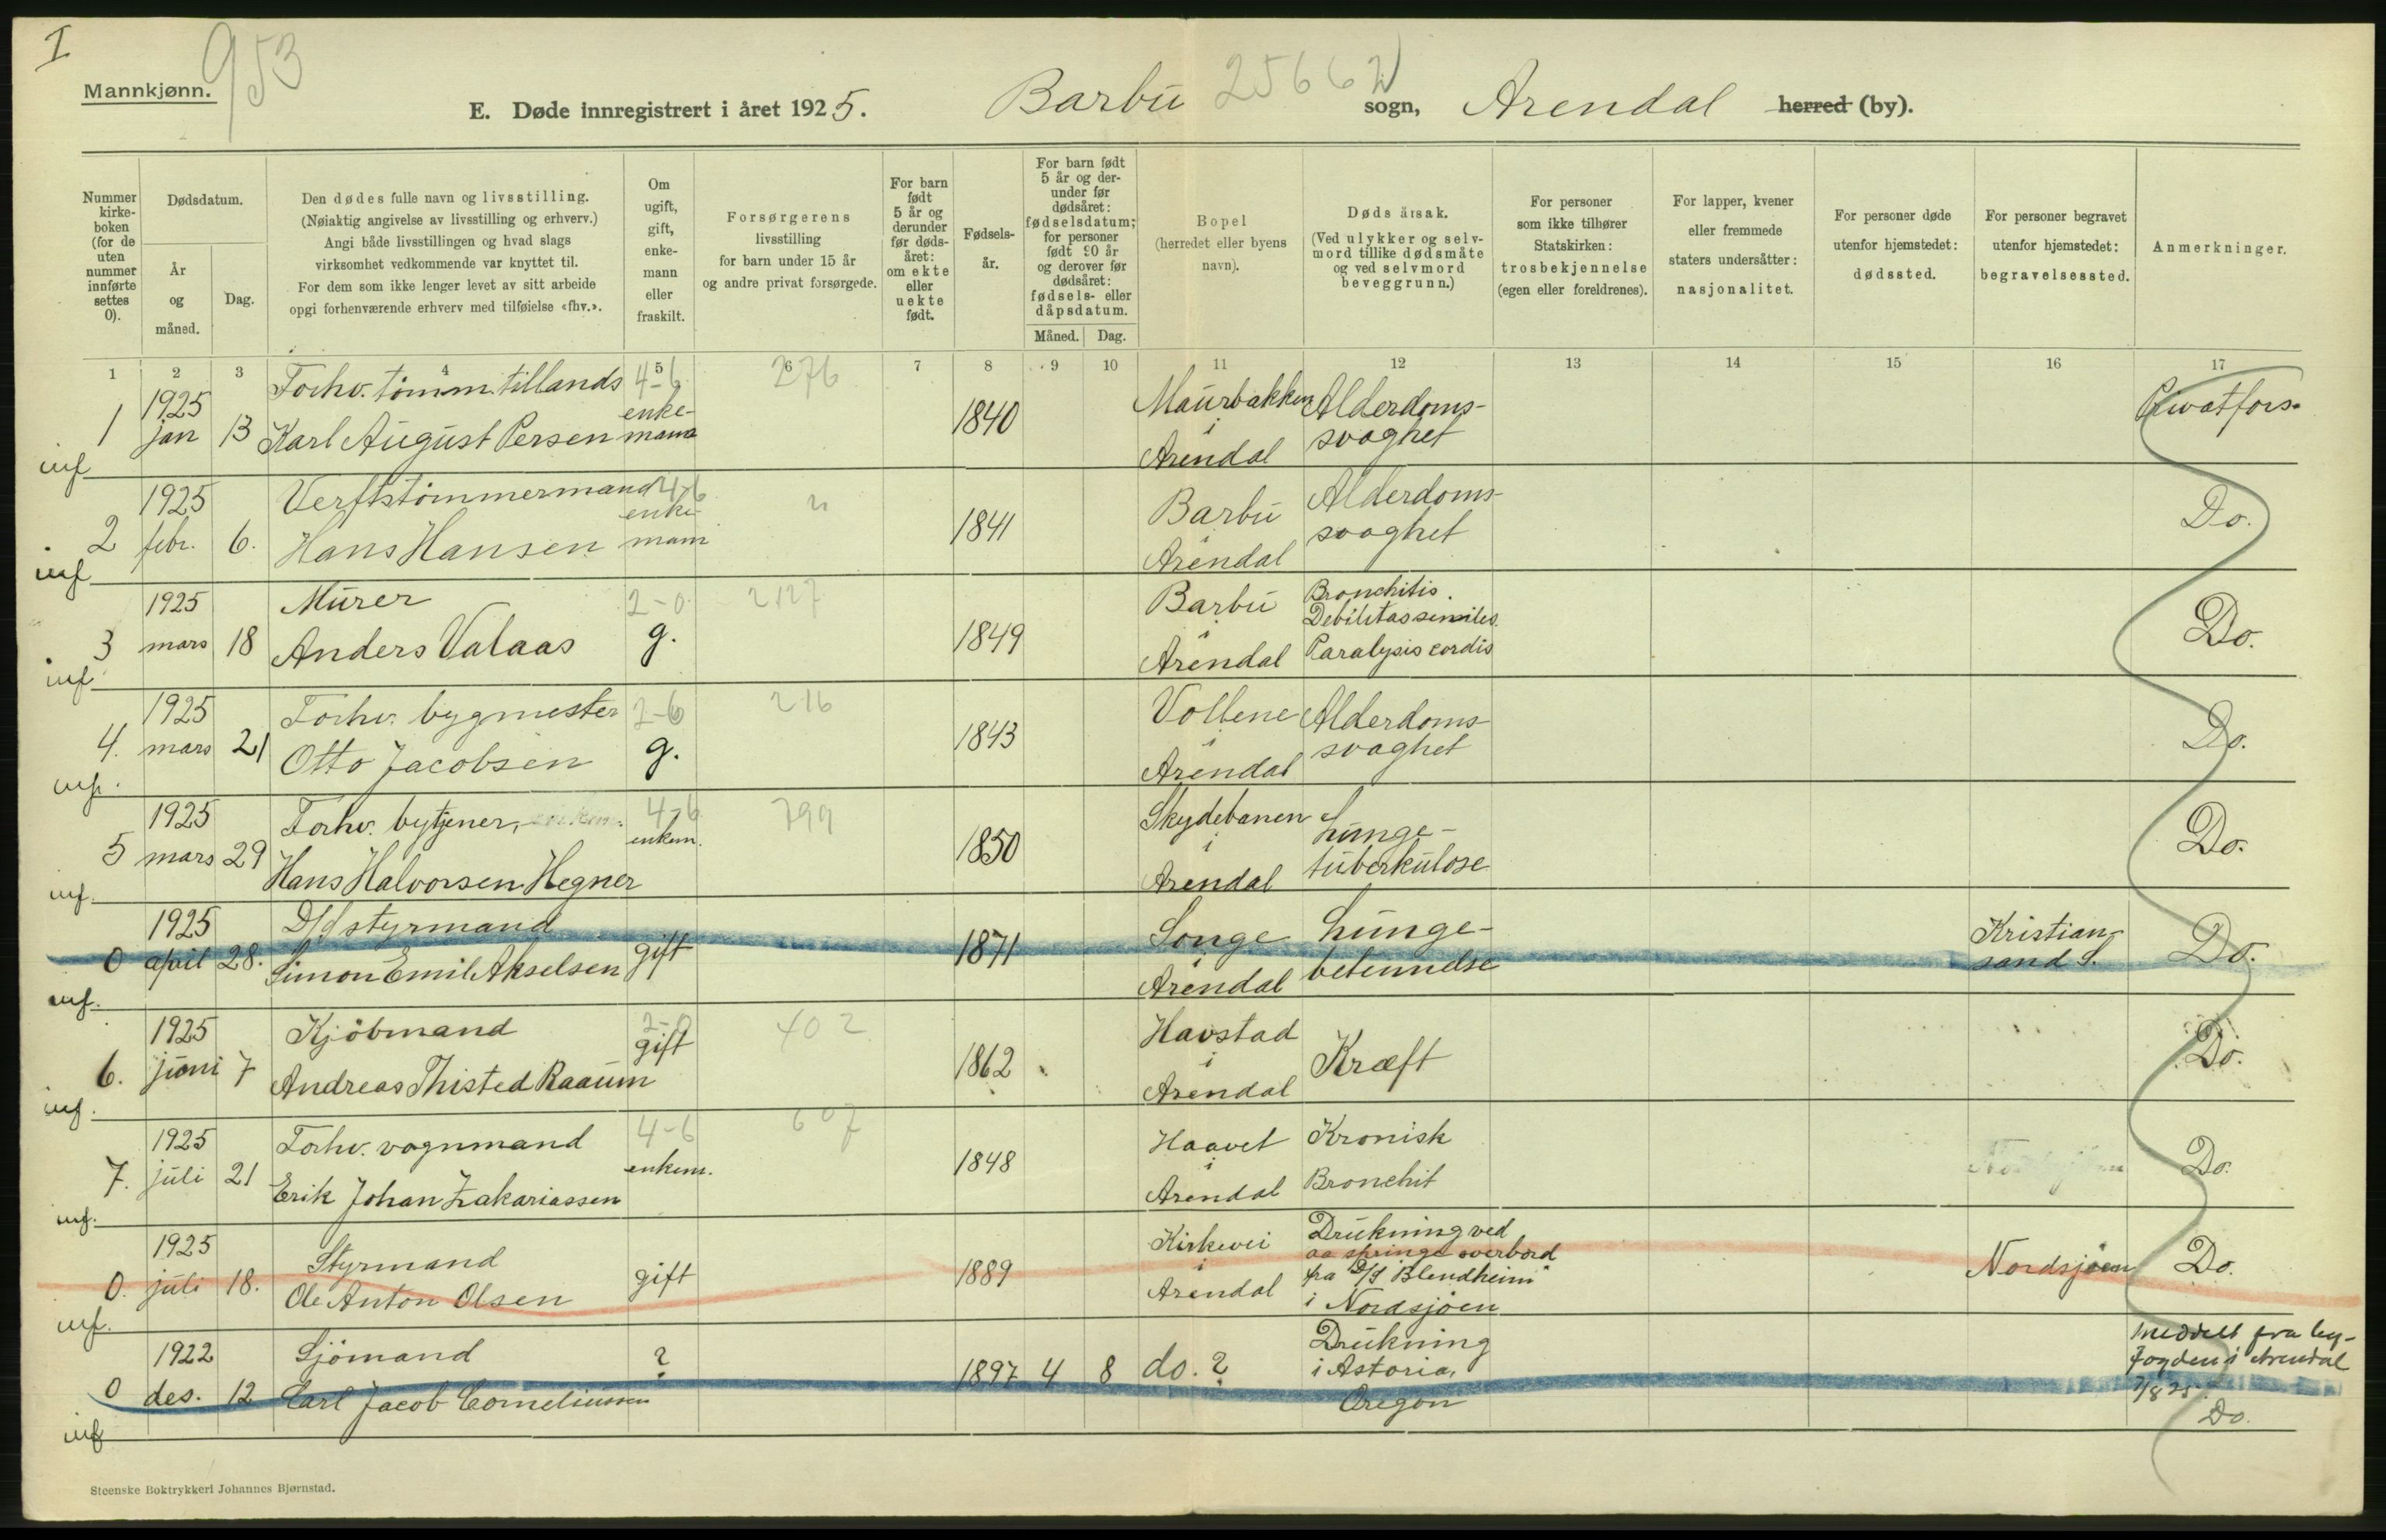 I
953
Mannkjønn.
E. Døde innregistrert i året 1925.
Barbu 25662
sogn, Arendal herred (by).
Nummer kirke-boken (for de uten nummer innførte settes 0).
Dødsdatum.
År og måned.
Dag.
Den dødes fulle navn og livsstilling.
(Nøiaktig angivelse av livsstilling og erhverv.)
Angi både livsstillingen og hvad slags
virksomhet vedkommende var knyttet til.
For dem som ikke lenger levet av sitt arbeide
opgi forhenværende erhverv med tilføielse «fhv.».
Om ugift, gift, enke-mann eller fraskilt.
Forsørgerens
livsstilling
for barn under 15 år
og andre privat forsørgede.
For barn født 5 år og derunder før døds-året: om ekte eller uekte født.
Fødsels-år.
For barn født 5 år og der-under før dødsåret: fødselsdatum; for personer født 90 år og derover før dødsåret: fødsels- eller dåpsdatum.
Måned. Dag.
Bopel
(herredet eller byens
navn).
Dødsårsak.
(Ved ulykker og selv-
mord tillike dødsmåte
og ved selvmord
beveggrunn.)
For personer
som ikke tilhører
Statskirken:
trosbekjennelse
(egen eller foreldrenes).
For lapper, kvener
eller fremmede
staters undersåtter:
nasjonalitet.
For personer døde
utenfor hjemstedet:
dødssted.
For personer begravet
utenfor hjemstedet:
begravelsessted.
Anmerkninger.
1 2 3 4 5 6 7 8 9 10 11 12 13 14 15 16 17
1 1925 jan 13 Forhv. tømm. tillands Karl August Persen 4-6 enke-mann 276 1840 Maurbakken i Arendal Alderdoms-svaghet Privatfors.
inf
2 1925 febr. 6. Verftstømmermand Hans Hansen 4-6 enke-mann " 1841 Barbu i Arendal Alderdoms-svaghet Do.
inf
3 1925 mars 18 Murer Anders Valaas 2-0 g. 2127 1849 Barbu i Arendal Bronchitis. Debilitas seniles. Paralysis cordis Do.
inf
4. 1925 mars 21 Forhv. bygmester Otto Jacobsen 2-6 g. 216 1843 Vollene i Arendal Alderdoms-svaghet Do.
inf.
5 1925 mars 29 Forhv. bytjener, Hans Halvorsen Hegner 4-6 enkem. 799 1850 Skydebanen i Arendal Lunge-tuberkulose Do.
inf.
0 1925 april 28. D/S styrmand Simon Emil Akselsen gift 1871 Songe i Arendal Lunge-betennelse Kristian-sand S. Do.
inf.
6. 1925 juni 7 Kjøbmand Andreas Thisted Raaum 2-0 gift 402 1862 Havstad i Arendal Kræft Do.
inf.
7. 1925 juli 21 Forhv. vognmand Erik Johan Zakariassen 4-6 enkem. 607 1848 Haavet i Arendal Kronisk Bronchit Do.
inf.
0. 1925 juli 18. Styrmand Ole Anton Olsen gift 1889 Kirkevei i Arendal Drukning ved aa springe overbord fra D/S "Blendheim" i Nordsjøen Nordsjøen Do.
inf.
0 1922 des. 12 Sjømand Carl Jacob Corneliussen ? 1897 4 8 do. ? Drukning i Astoria, Oregon meddelt fra by-fogden i Arendal 7/8 25. Do.
inf
Steenske Boktrykkeri Johannes Bjørnstad.